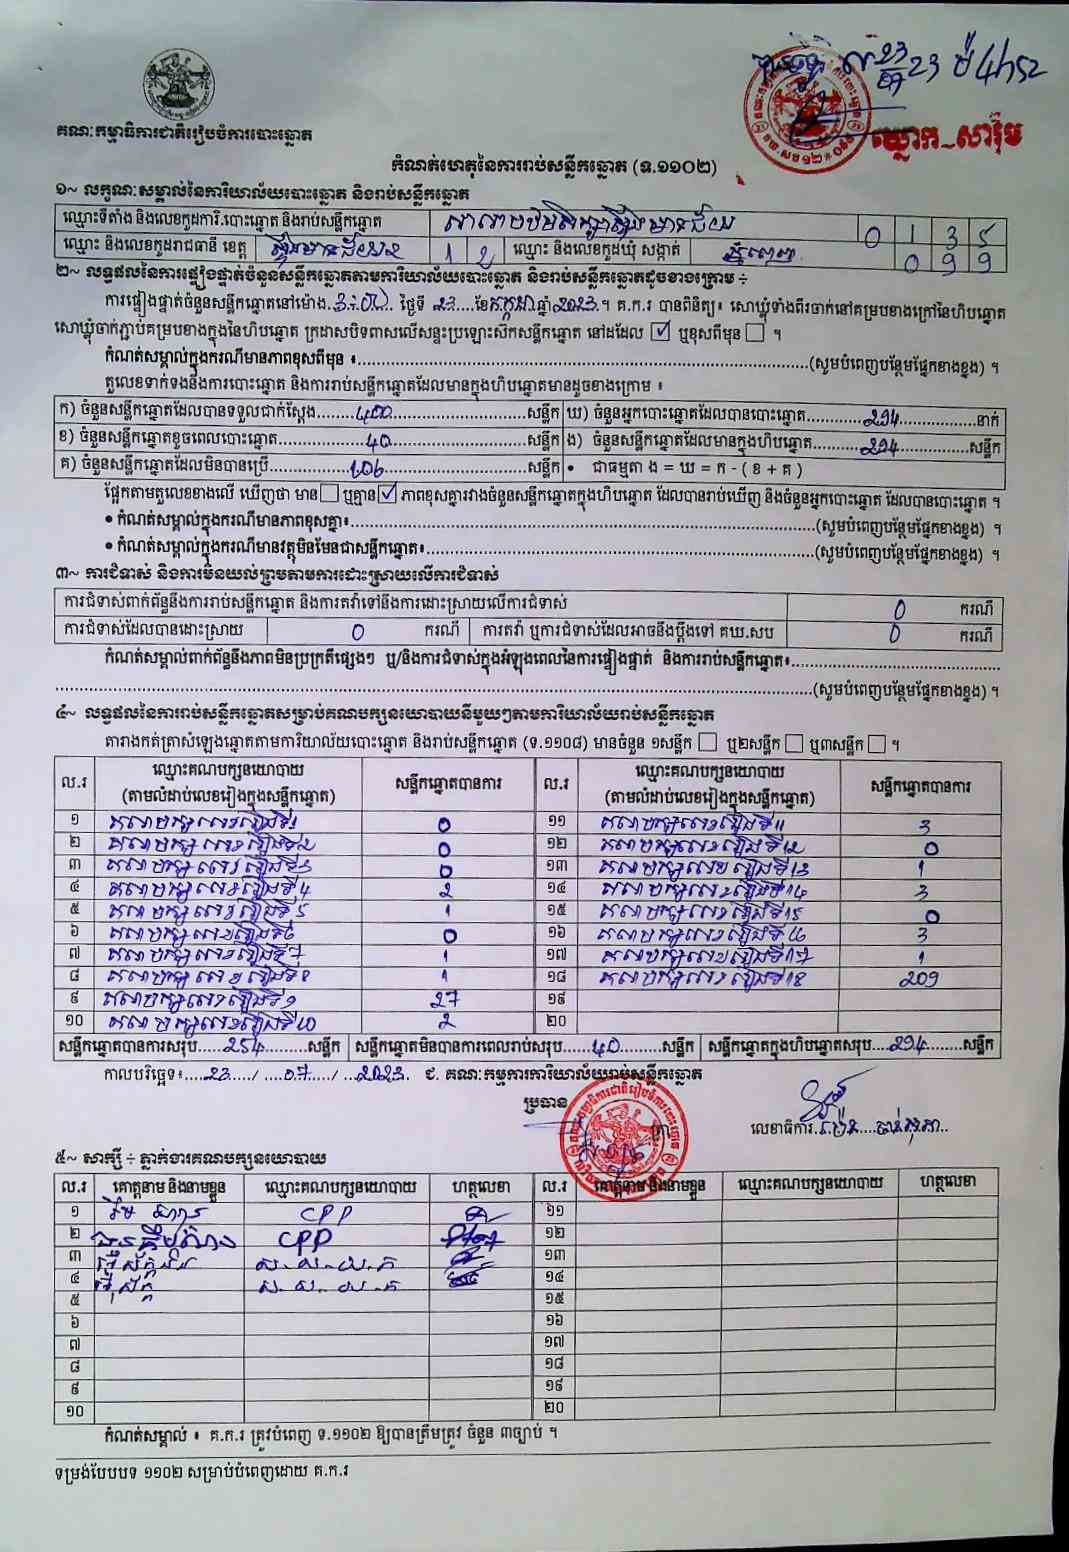 គណៈកម្មាធិការជាតិរៀបចំការបោះឆ្នោត
ឃ្លោក_សារ៉ុម
កំណត់ហេតុនៃការរាប់សន្លឹកឆ្នោត (ទ.១១០២)
១~ លក្ខណៈសម្គាល់នៃការិយាល័យបោះឆ្នោត និងរាប់សន្លឹកឆ្នោត
ឈ្មោះទីតាំង និងលេខកូដការិ.បោះឆ្នោត និងរាប់សន្លឹកឆ្នោត 0 1 3 5
ឈ្មោះ និងលេខកូដរាជធានី ខេត្ត 1 2 ឈ្មោះ និងលេខកូដឃុំ សង្កាត់ ភ្នំពេញ 0 9 9
២~ លទ្ធផលនៃការផ្ទៀងផ្ទាត់ចំនួនសន្លឹកឆ្នោតតាមការិយាល័យបោះឆ្នោត និងរាប់សន្លឹកឆ្នោតដូចខាងក្រោម ÷
ការផ្ទៀងផ្ទាត់ចំនួនសន្លឹកឆ្នោតនៅម៉ោង.3:00. ថ្ងៃទី 23 ខែ កក្កដា ឆ្នាំ 2023 ។ គ.ក.រ បានពិនិត្យ៖ សោឃ្លុំទាំងពីរចាក់នៅគម្របខាងក្រៅនៃហិបឆ្នោត
សោឃ្លុំចាក់ភ្ជាប់គម្របខាងក្នុងនៃហិបឆ្នោត ក្រដាសបិទពាសលើសន្ទះប្រឡោះស៊កសន្លឹកឆ្នោត នៅដដែល ☑ ឬខុសពីមុន ☐ ។
កំណត់សម្គាល់ក្នុងករណីមានភាពខុសពីមុន ៖ (សូមបំពេញបន្ថែមផ្នែកខាងខ្នង) ។
តួលេខទាក់ទងនឹងការបោះឆ្នោត និងការរាប់សន្លឹកឆ្នោតដែលមានក្នុងហិបឆ្នោតមានដូចខាងក្រោម ៖
ក) ចំនួនសន្លឹកឆ្នោតដែលបានទទួលជាក់ស្តែង 400 សន្លឹក ឃ) ចំនួនអ្នកបោះឆ្នោតដែលបានបោះឆ្នោត 294 នាក់
ខ) ចំនួនសន្លឹកឆ្នោតខូចពេលបោះឆ្នោត 40 សន្លឹក ង) ចំនួនសន្លឹកឆ្នោតដែលមានក្នុងហិបឆ្នោត 294 សន្លឹក
គ) ចំនួនសន្លឹកឆ្នោតដែលមិនបានប្រើ 106 សន្លឹក • ជាធម្មតា ង = ឃ = ក - ( ខ + គ )
ផ្អែកតាមតួលេខខាងលើ ឃើញថា មាន ☐ ឬគ្មាន ☑ ភាពខុសគ្នារវាងចំនួនសន្លឹកឆ្នោតក្នុងហិបឆ្នោត ដែលបានរាប់ឃើញ និងចំនួនអ្នកបោះឆ្នោត ដែលបានបោះឆ្នោត ។
• កំណត់សម្គាល់ក្នុងករណីមានភាពខុសគ្នា៖ (សូមបំពេញបន្ថែមផ្នែកខាងខ្នង) ។
• កំណត់សម្គាល់ក្នុងករណីមានវត្ថុមិនមែនជាសន្លឹកឆ្នោត៖ (សូមបំពេញបន្ថែមផ្នែកខាងខ្នង) ។
៣~ ការជំទាស់ និងការមិនយល់ព្រមតាមការដោះស្រាយលើការជំទាស់
ការជំទាស់ពាក់ព័ន្ធនឹងការរាប់សន្លឹកឆ្នោត និងការតវ៉ាទៅនឹងការដោះស្រាយលើការជំទាស់ 0 ករណី
ការជំទាស់ដែលបានដោះស្រាយ 0 ករណី ការតវ៉ា ឬការជំទាស់ដែលអាចនឹងប្តឹងទៅ គឃ.សប 0 ករណី
កំណត់សម្គាល់ពាក់ព័ន្ធនឹងភាពមិនប្រក្រតីផ្សេងៗ ឬ/និងការជំទាស់ក្នុងអំឡុងពេលនៃការផ្ទៀងផ្ទាត់ និងការរាប់សន្លឹកឆ្នោត៖
(សូមបំពេញបន្ថែមផ្នែកខាងខ្នង) ។
៤~ លទ្ធផលនៃការរាប់សន្លឹកឆ្នោតសម្រាប់គណបក្សនយោបាយនីមួយៗតាមការិយាល័យរាប់សន្លឹកឆ្នោត
តារាងកត់ត្រាសំឡេងឆ្នោតតាមការិយាល័យបោះឆ្នោត និងរាប់សន្លឹកឆ្នោត (ទ.១១០៨) មានចំនួន ១សន្លឹក ☐ ឬ២សន្លឹក ☐ ឬ៣សន្លឹក ☐ ។
ល.រ ឈ្មោះគណបក្សនយោបាយ (តាមលំដាប់លេខរៀងក្នុងសន្លឹកឆ្នោត) សន្លឹកឆ្នោតបានការ ល.រ ឈ្មោះគណបក្សនយោបាយ (តាមលំដាប់លេខរៀងក្នុងសន្លឹកឆ្នោត) សន្លឹកឆ្នោតបានការ
១ គណបក្សលេខរៀងទី1 0 ១១ គណបក្សលេខរៀងទី11 3
២ គណបក្សលេខរៀងទី2 0 ១២ គណបក្សលេខរៀងទី12 0
៣ គណបក្សលេខរៀងទី3 0 ១៣ គណបក្សលេខរៀងទី13 1
៤ គណបក្សលេខរៀងទី4 2 ១៤ គណបក្សលេខរៀងទី14 3
៥ គណបក្សលេខរៀងទី5 1 ១៥ គណបក្សលេខរៀងទី15 0
៦ គណបក្សលេខរៀងទី6 0 ១៦ គណបក្សលេខរៀងទី16 3
៧ គណបក្សលេខរៀងទី7 1 ១៧ គណបក្សលេខរៀងទី17 1
៨ គណបក្សលេខរៀងទី8 1 ១៨ គណបក្សលេខរៀងទី18 209
៩ គណបក្សលេខរៀងទី9 27 ១៩
១០ គណបក្សលេខរៀងទី10 2 ២០
សន្លឹកឆ្នោតបានការសរុប 254 សន្លឹក សន្លឹកឆ្នោតមិនបានការពេលរាប់សរុប 40 សន្លឹក សន្លឹកឆ្នោតក្នុងហិបឆ្នោតសរុប 294 សន្លឹក
កាលបរិច្ឆេទ៖ 23 / 07 / 2023 ជ. គណៈកម្មការការិយាល័យរាប់សន្លឹកឆ្នោត
ប្រធាន
លេខាធិការ
៥~ សាក្សី ÷ ភ្នាក់ងារគណបក្សនយោបាយ
ល.រ គោត្តនាម និងនាមខ្លួន ឈ្មោះគណបក្សនយោបាយ ហត្ថលេខា ល.រ គោត្តនាម និងនាមខ្លួន ឈ្មោះគណបក្សនយោបាយ ហត្ថលេខា
១ CPP ១១
២ CPP ១២
៣ ស.ស.យ.ក ១៣
៤ ស.ស.យ.ក ១៤
៥ ១៥
៦ ១៦
៧ ១៧
៨ ១៨
៩ ១៩
១០ ២០
កំណត់សម្គាល់ ៖ គ.ក.រ ត្រូវបំពេញ ទ.១១០២ ឱ្យបានត្រឹមត្រូវ ចំនួន ៣ច្បាប់ ។
ទម្រង់បែបបទ ១១០២ សម្រាប់បំពេញដោយ គ.ក.រ